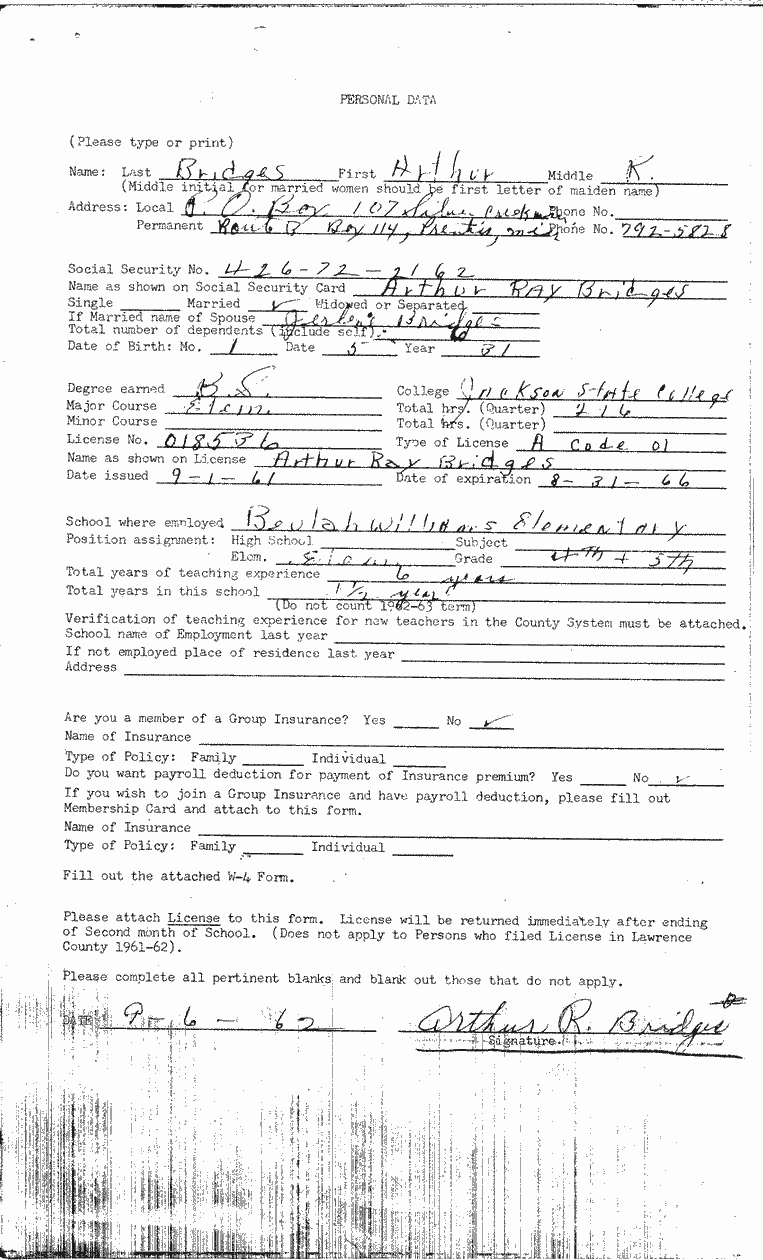 PERSONAL DATA
(Please type or print)
Name: Last Bridges First Arthur Middle R.
(Middle initial for married women should be first letter of maiden name)
Address: Local P. O. Box 107 Silver Creek Phone No.
Permanent Route B Box 114, Prentis, miss Phone No. 792-5828
Social Security No. 426-72-2162
Name as shown on Social Security Card Arthur RAY Bridges
Single Married ✓ Widowed or Separated
If Married name of Spouse Bridges
Total number of dependents (include self). 6
Date of Birth: Mo. 1 Date 5 Year 31
Degree earned B.S. College Jackson State College
Major Course Elem. Total hrs. (Quarter) 216
Minor Course Total hrs. (Quarter)
License No. 018536 Type of License A Code 01
Name as shown on License Arthur Ray Bridges
Date issued 9-1-61 Date of expiration 8-31-66
School where employed Beulah Williams Elementary
Position assignment: High School Subject
Elem. Elem Grade 4th + 5th
Total years of teaching experience 6 years
Total years in this school 1½ year
(Do not count 1962-63 term)
Verification of teaching experience for new teachers in the County System must be attached.
School name of Employment last year
If not employed place of residence last year
Address
Are you a member of a Group Insurance? Yes No ✓
Name of Insurance
Type of Policy: Family Individual
Do you want payroll deduction for payment of Insurance premium? Yes No ✓
If you wish to join a Group Insurance and have payroll deduction, please fill out
Membership Card and attach to this form.
Name of Insurance
Type of Policy: Family Individual
Fill out the attached W-4 Form.
Please attach License to this form. License will be returned immediately after ending
of Second month of School. (Does not apply to Persons who filed License in Lawrence
County 1961-62).
Please complete all pertinent blanks and blank out those that do not apply.
DATE 9-6-62 Arthur R. Bridges
Signature